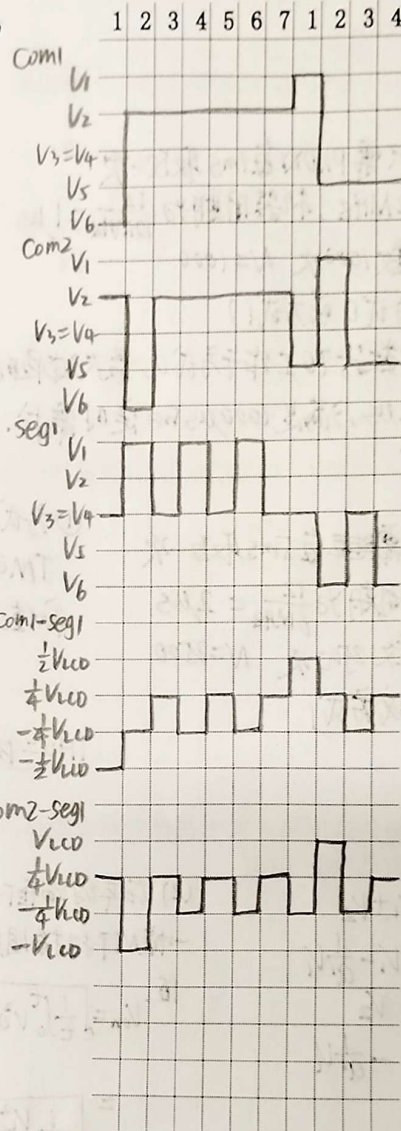 1 2 3 4 5 6 7 1 2 3 4
Com1
V1
V2
V3=V4
V5
V6
Com2
V1
V2
V3=V4
V5
V6
Seg1
V1
V2
V3=V4
V5
V6
Com1-seg1
1/2VLCD
1/4VLCD
-1/4VLCD
-1/2VLCD
om2-seg1
VLCD
1/4VLCD
-1/4VLCD
-VLCD